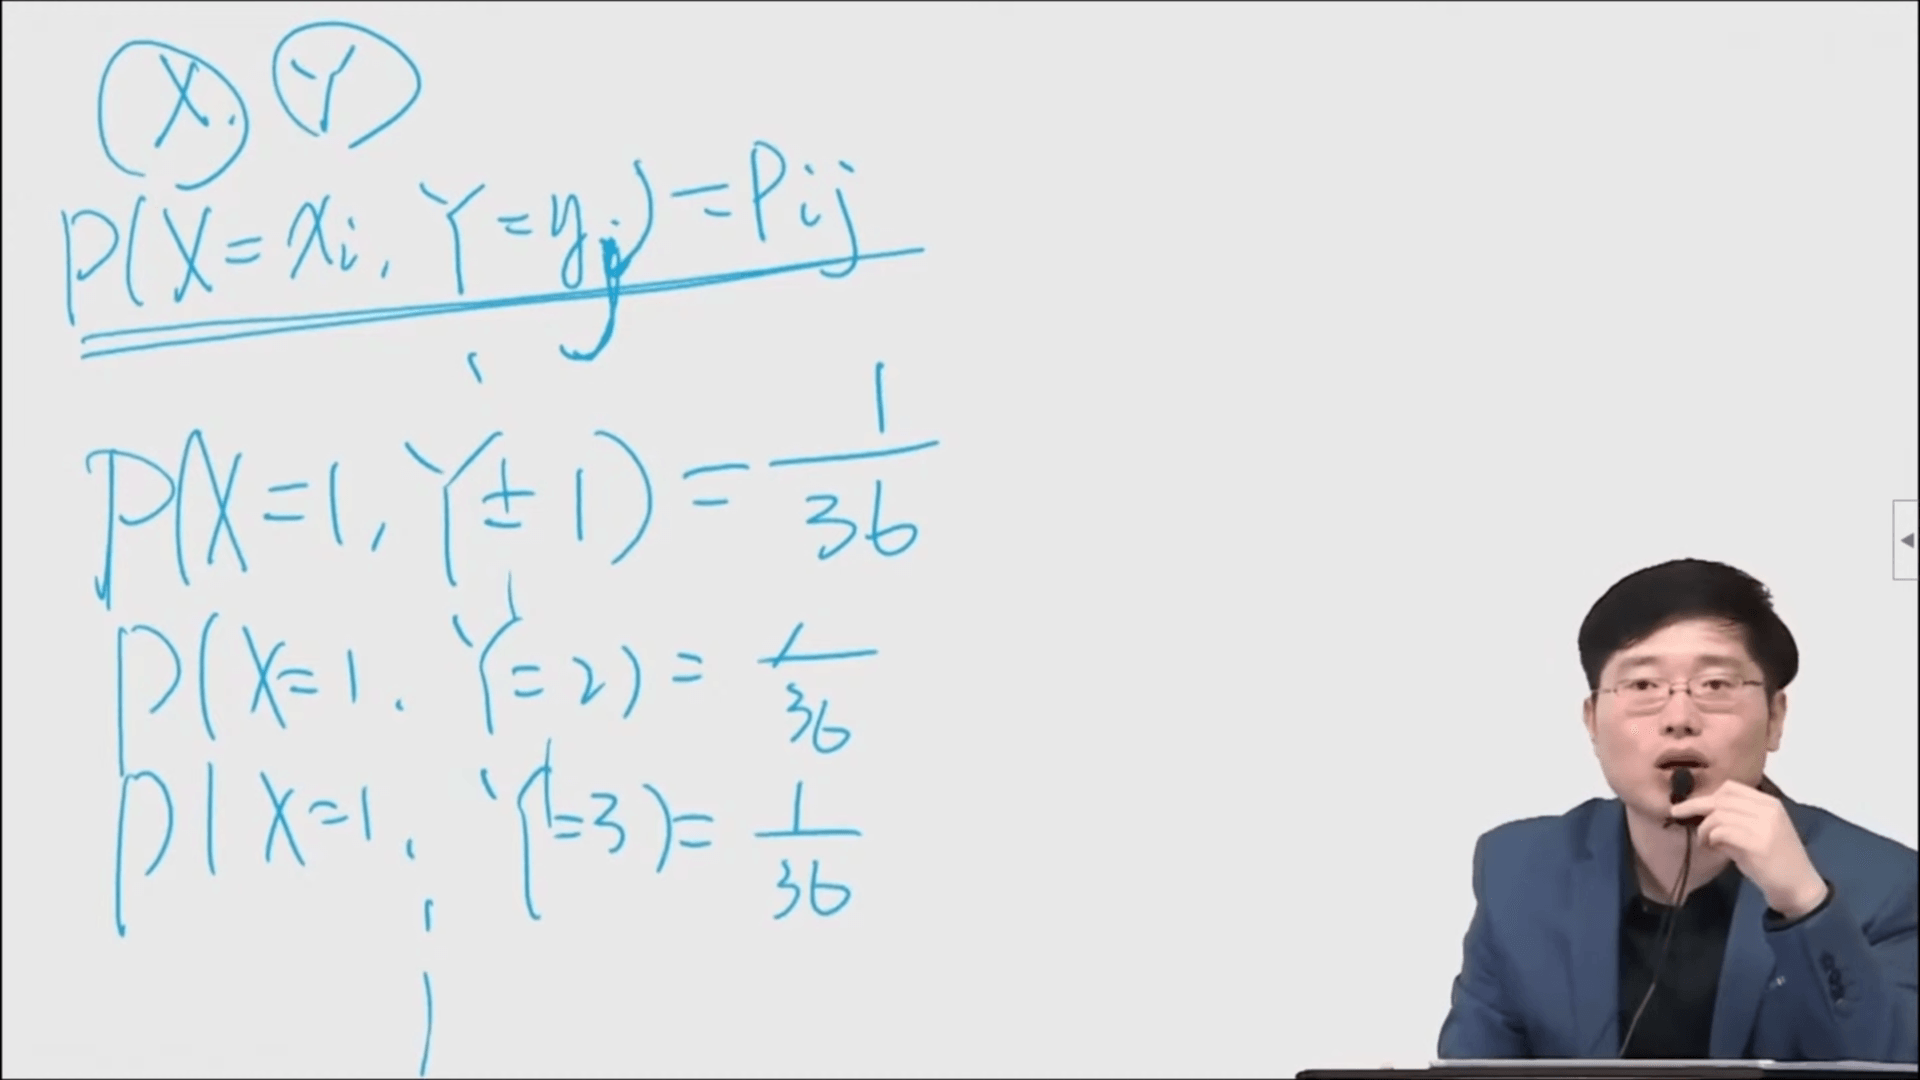 X. Y
P(X=xi, Y=yj)=Pij
P(X=1, Y=1)=1/36
P(X=1. Y=2)=1/36
P(X=1. Y=3)=1/36